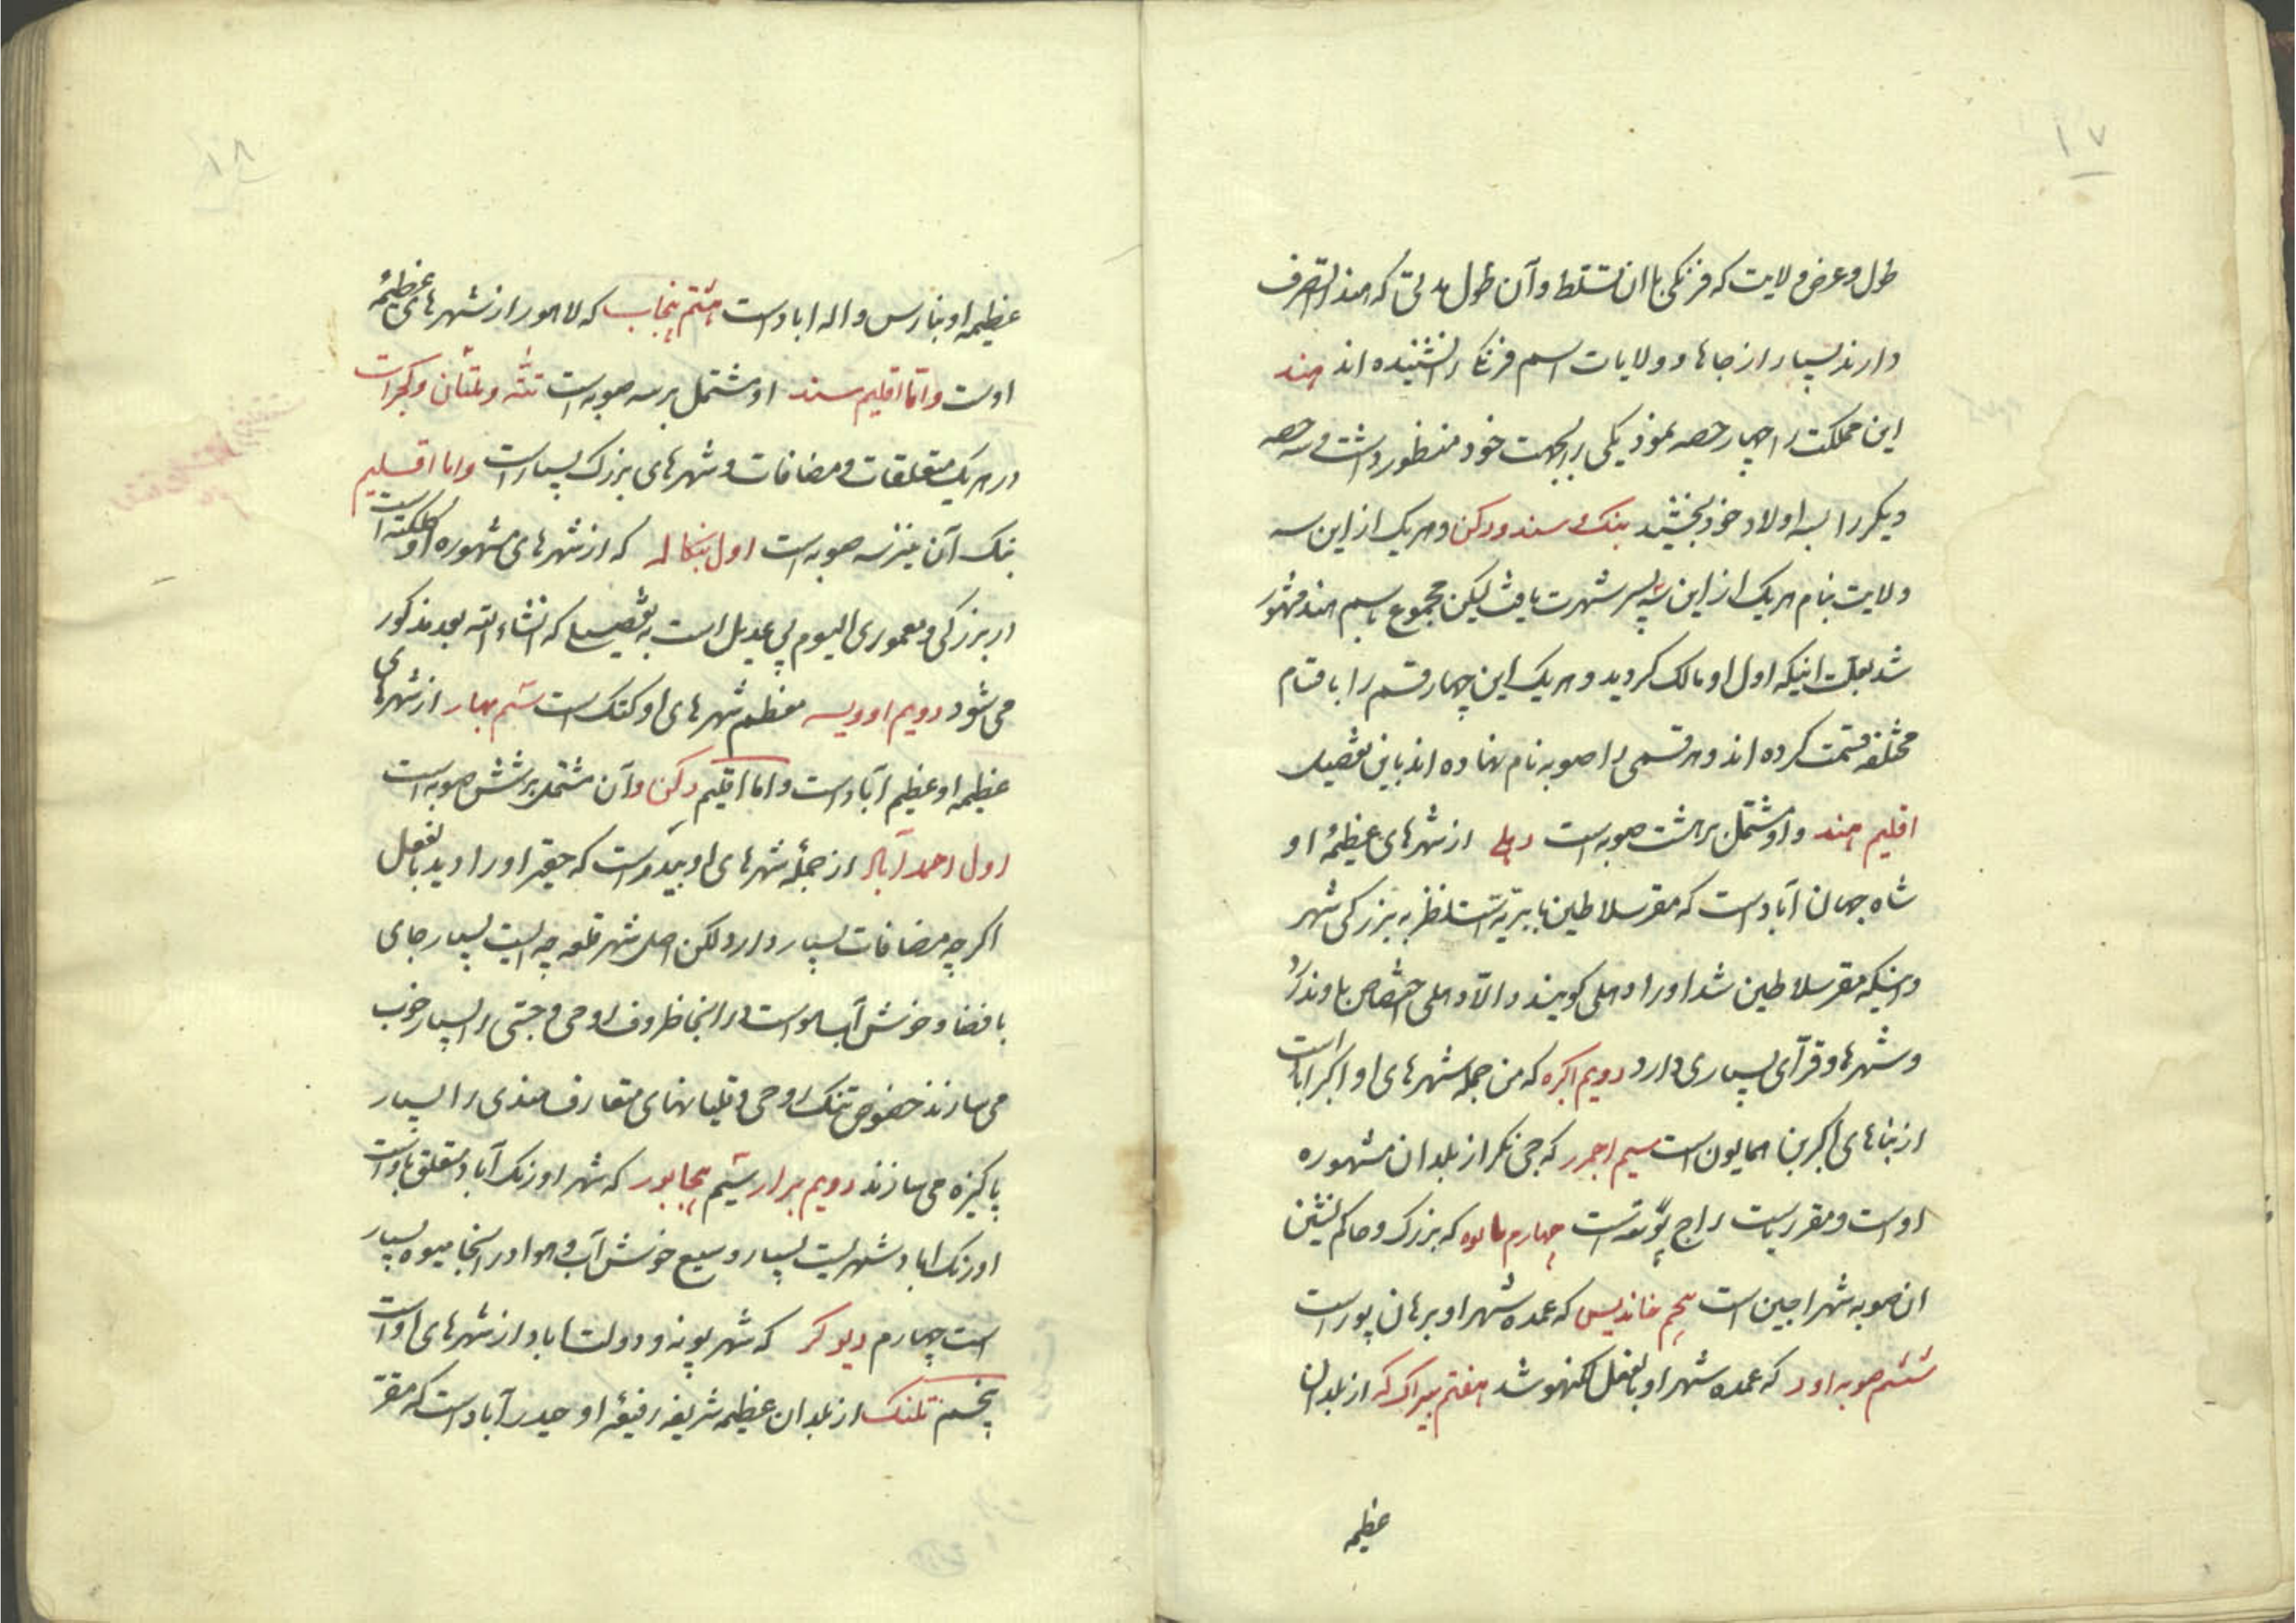 ۱۷
طول و عرض ولایت که فرنکی با ان تسلط و آن طول مدتی که هند را تصرف
دارند بسیار از جاها و ولایات اسم فرنک را نشنیده اند هند
این مملکت را چهار حصه نموذ یکی را بجهت خود منظور داشت و سه حصه
دیکر را بسه اولاد خوذ بخشید بنک و سند و دکن و هر یک از این سه
ولایت بنام هر یک از این سه پسر شهرت یافت لیکن مجموع باسم هند مشهور
شد بعلت اینکه اول او مالک کردید و هر یک این چهار قسم را باقسام
مختلفه قسمت کرده اند و هر قسمی را صوبه نام نهاده اند باین تفصیل
اقلیم هند و او مشتمل بر هشت صوبه است دهلی از شهرهای عظیمهٔ او
شاه جهان آباد است که مقر سلاطین بابریه است نظر به بزرکی شهر
و اینکه مقر سلاطین شد او را دهلی کویند و الا دهلی اختصاص باو ندارد
و شهرها و قرآی بسیاری دارد دویم اکره که من جمله شهرهای او اکبراباد است
از بناهای اکبر بن همایون است سیم اجمیر که جی نکر از بلدان مشهوره
اوست و مقر ریاست راج پوته است چهارم مالوه که بزرک و حاکم نشین
ان صوبه شهر اجین است پنجم خاندیس که عمده شهر او برهان پور است
ششم صوبه اود که عمده شهر او بالفعل لکنهو شد هفتم پیراک که از بلدان
عظیمه
۱۸
عظیمه او بنارس و اله اباد است هشتم پنجاب که لاهور از شهرهای عظیمهٔ
اوست و اما اقلیم سند او مشتمل بر سه صوبه است تته و ملتان و کجرات
در هر یک متعلقات و مضافات و شهرهای بزرک بسیار است و اما اقلیم
بنک آن نیز سه صوبه است اول بنکاله که از شهرهای مشهوره او کلکته است
در بزرکی و معموری الیوم بی عدیل است به تفصیلی که انشاء الله بعد مذکور
می شود دویم اودیسه معظم شهرهای او کتک است سیم بهار از شهرهای
عظیمه او عظیم آباد است و اما اقلیم دکن و آن مشتمل بر شش صوبه است
اول احمد آباد از جملهٔ شهرهای او بیدر است که حقیر او را دید بالفعل
اکرچه مضافات بسیار دارد لکن اصل شهر قلعه چه ایست بسیار جای
با فضا و خوش آب و هواست در اینجا ظروف روحی و جستی را بسیار خوب
می سازند خصوص تنک روحی و قلیانهای متعارف هندی را بسیار
پاکیزه می سازند دویم برار سیم بیجاپور که شهر اورنک آباد متعلق باو است
اورنک اباد شهریست بسیار وسیع خوش آب و هوا در اینجا میوه بسیار
است چهارم دیوکر که شهر پونه و دولت اباد از شهرهای او است
پنجم تلنک از بلدان عظیمه شریفه رفیعهٔ او حیدر آباد است که مقر